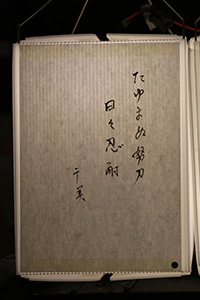 たゆまぬ努力
日々忍耐
千美